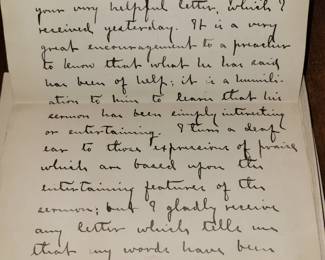 your very helpful letter, which I
received yesterday. It is a very
great encouragement to a preacher
to know that what he has said
has been of help; it is a humili-
ation to him to learn that his
sermon has been simply interesting
or entertaining. I turn a deaf
ear to those expressions of praise
which are based upon the
entertaining features of the
sermon; but I gladly receive
any letter which tells me
that my words have been